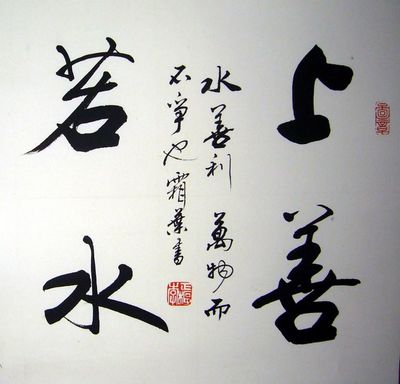 上善
若水
水善利萬物而
不爭也霜葉書